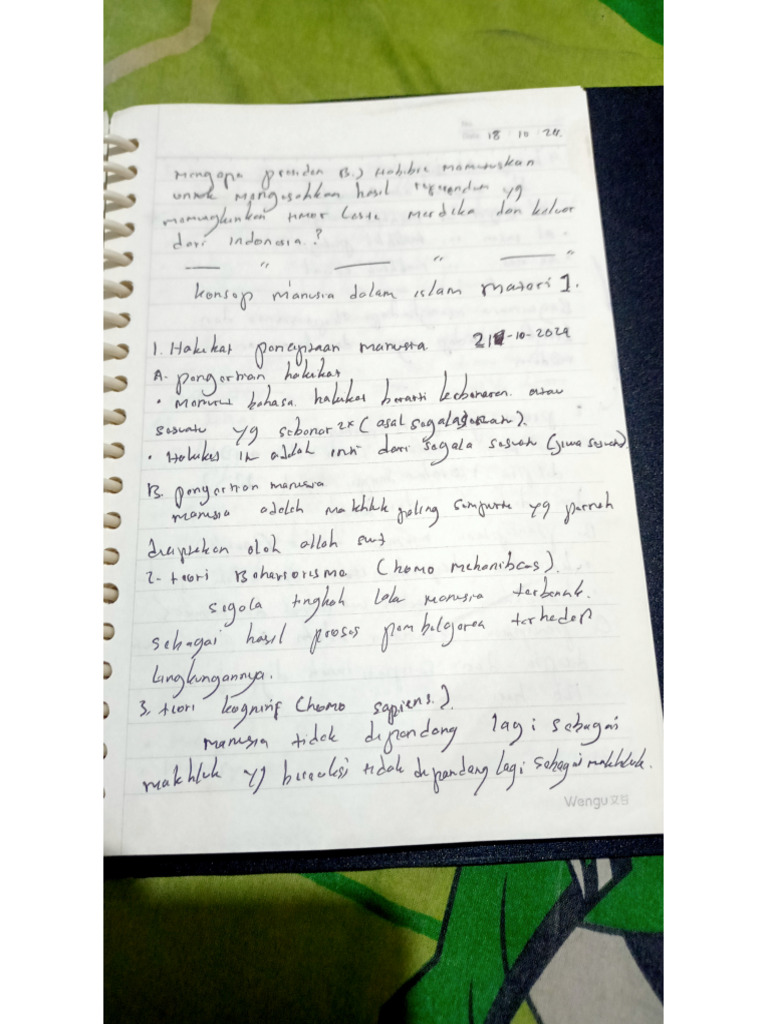 18 10 24.
Mengapa presiden B.J Habibie memutuskan
untuk mengesahkan hasil referendum yg
memungkinkan timor Leste merdeka dan keluar
dari Indonesia.?
— " — " — "
Konsep Manusia dalam islam materi 1.
1. Hakikat penciptaan manusia 21-10-2024
A. pengertian hakikat
• Menurut bahasa, hakikat berarti kebenaran atau
sesuatu yg sebenar 2x (asal segala
• Hakikat in adalah inti dari segala sesuatu (jiwa sesuatu)
B. pengertian manusia
manusia adalah makhluk paling sempurna yg pernah
diciptakan oleh allah swt
2. teori Behaviorisme (homo mehanibcs).
segala tingkah laku manusia terbentuk.
sebagai hasil proses pembelajaran terhadap
lingkungannya.
3. teori kogninif (homo sapiens.).
manusia tidak dipandang lagi sebagai
makhluk yg bereaksi tidak dipandang lagi sebagai makhluk.
Wengu文谷